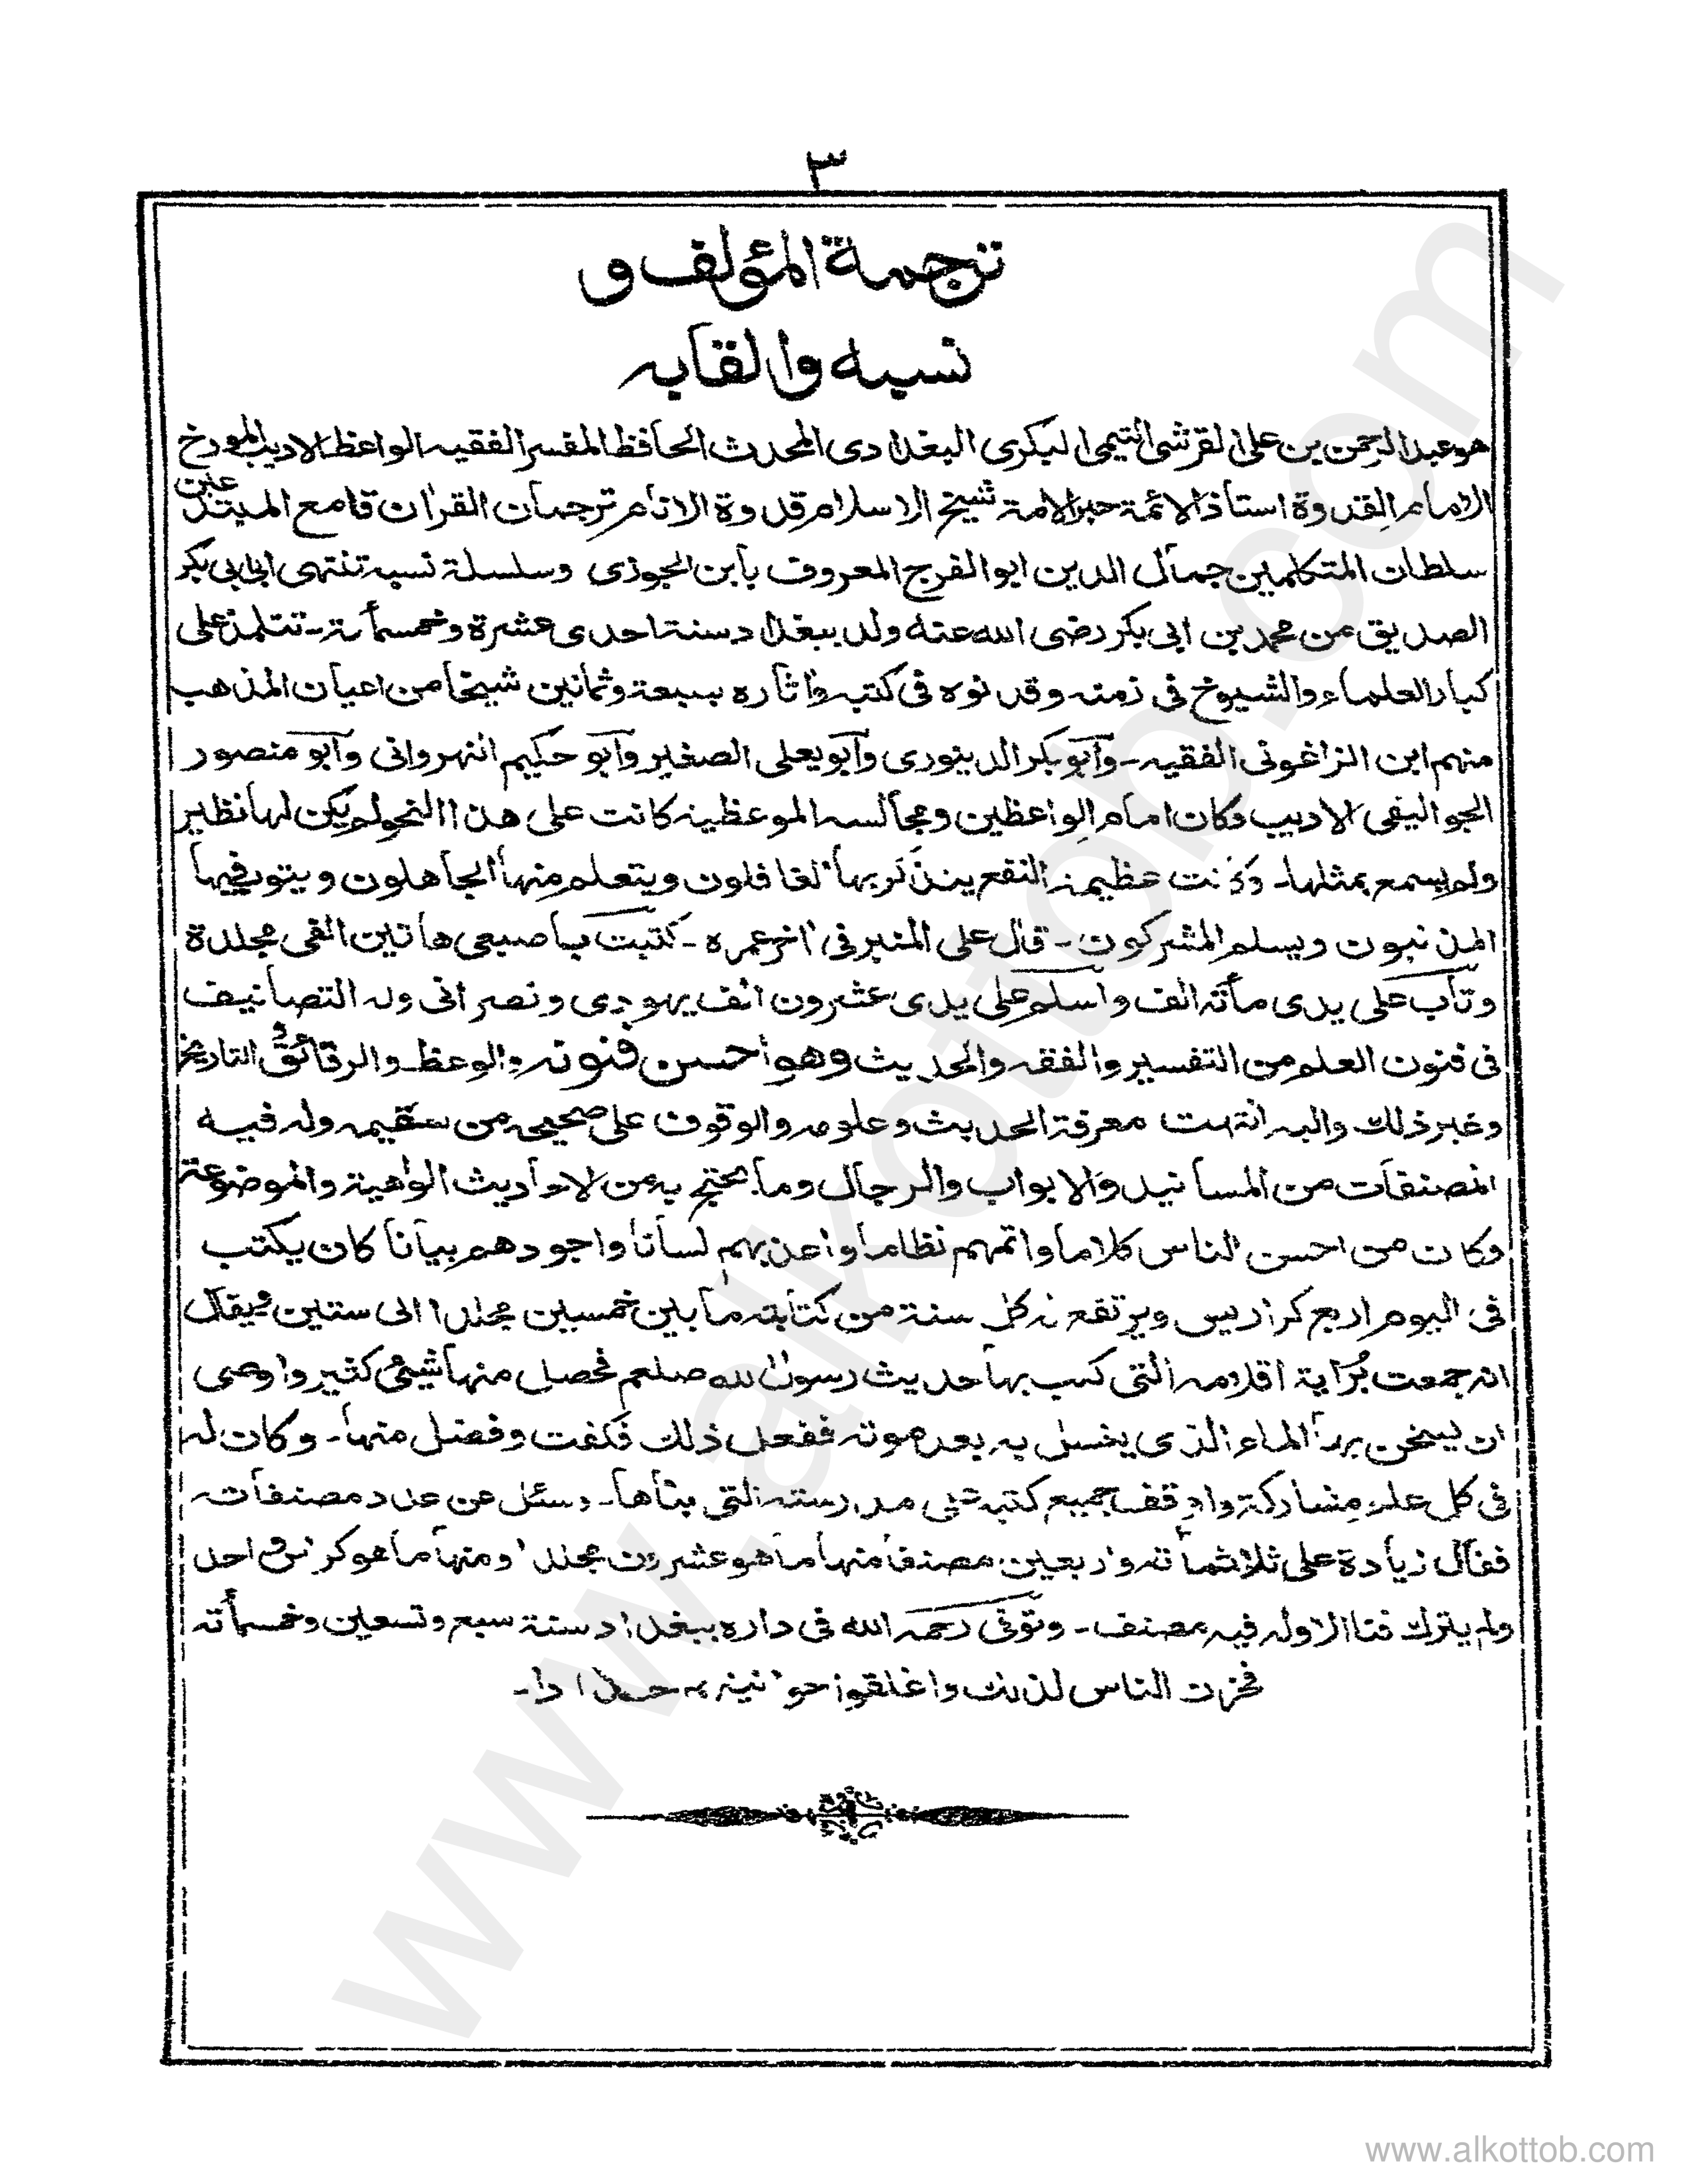 ٣
ترجمة المؤلف و
نسبه والقابه
هو عبد الرحمن بن على القرشى التيمى البكرى البغدادى المحدث الحافظ المفسر الفقيه الواعظ الاديب المورخ
الامام القدوة استاذ الائمة حبر الامة شيخ الاسلام قدوة الانام ترجمان القرآن قامع المبتدعين
سلطان المتكلمين جمال الدين ابو الفرج المعروف بابن الجوزى وسلسلة نسبه تنتهى الى ابى بكر
الصديق من محمد بن ابى بكر رضى الله عنه ولد ببغداد سنة احدى عشرة وخمسمأئة - تتلمذ على
كبار العلماء والشيوخ فى زمنه وقد نوه فى كتبه واثاره بسبعة وثمانين شيخا من اعيان المذهب
منهم ابن الزاغونى الفقيه - وابو بكر الدينورى وابو يعلى الصغير وابو حكيم النهروانى وابو منصور
الجواليقى الاديب وكان امام الواعظين ومجالسه الوعظية كانت على هذا النحو لم يكن لها نظير
ولم يسمع بمثلها - وكانت عظيمة النفع يتذكر بها الغافلون ويتعلم منها الجاهلون ويتوب فيها
المذنبون ويسلم المشركون - قال على المنبر فى اخر عمره - كتبت باصبعى هاتين الفى مجلدة
وتاب على يدى مأته الف واسلم على يدى عشرون الف يهودى ونصرانى وله التصانيف
فى فنون العلم من التفسير والفقه والحديث وهو احسن فنونه والوعظ والرقائق والتاريخ
وغير ذلك واليه انتهت معرفة الحديث وعلومه والوقوف على صحيحه من سقيمه وله فيه
المصنفات من المسانيد والابواب والرجال وما يحتج به من الاحاديث الواهية والموضوعة
وكان من احسن الناس كلاما واتمهم نظاما واعذبهم لسانا واجودهم بيانا كان يكتب
فى اليوم اربع كراريس ويرتفع له كل سنة من كتابته ما بين خمسين مجلدا الى ستين ويقال
انه جمعت بُراية اقلامه التى كتب بها حديث رسول الله صلعم فحصل منها شيئ كثير واوصى
ان يسخن بها الماء الذى يغسل به بعد موته ففعل ذلك فكفت وفضل منها - وكان له
فى كل علم مشاركة واوقف جميع كتبه على مدرسته التى بناها - وسئل عن عدد مصنفاته
فقال زيادة على ثلاثمأته واربعين مصنفا منها ما هو عشرون مجلدا ومنها ما هو كراس واحد
ولم يترك فنا الا وله فيه مصنف - وتوفى رحمه الله فى داره ببغداد سنة سبع وتسعين وخمسمأته
فحزن الناس لذلك واغلقوا حوانيتهم حدادا -
www.alkottob.com
www.alkottob.com